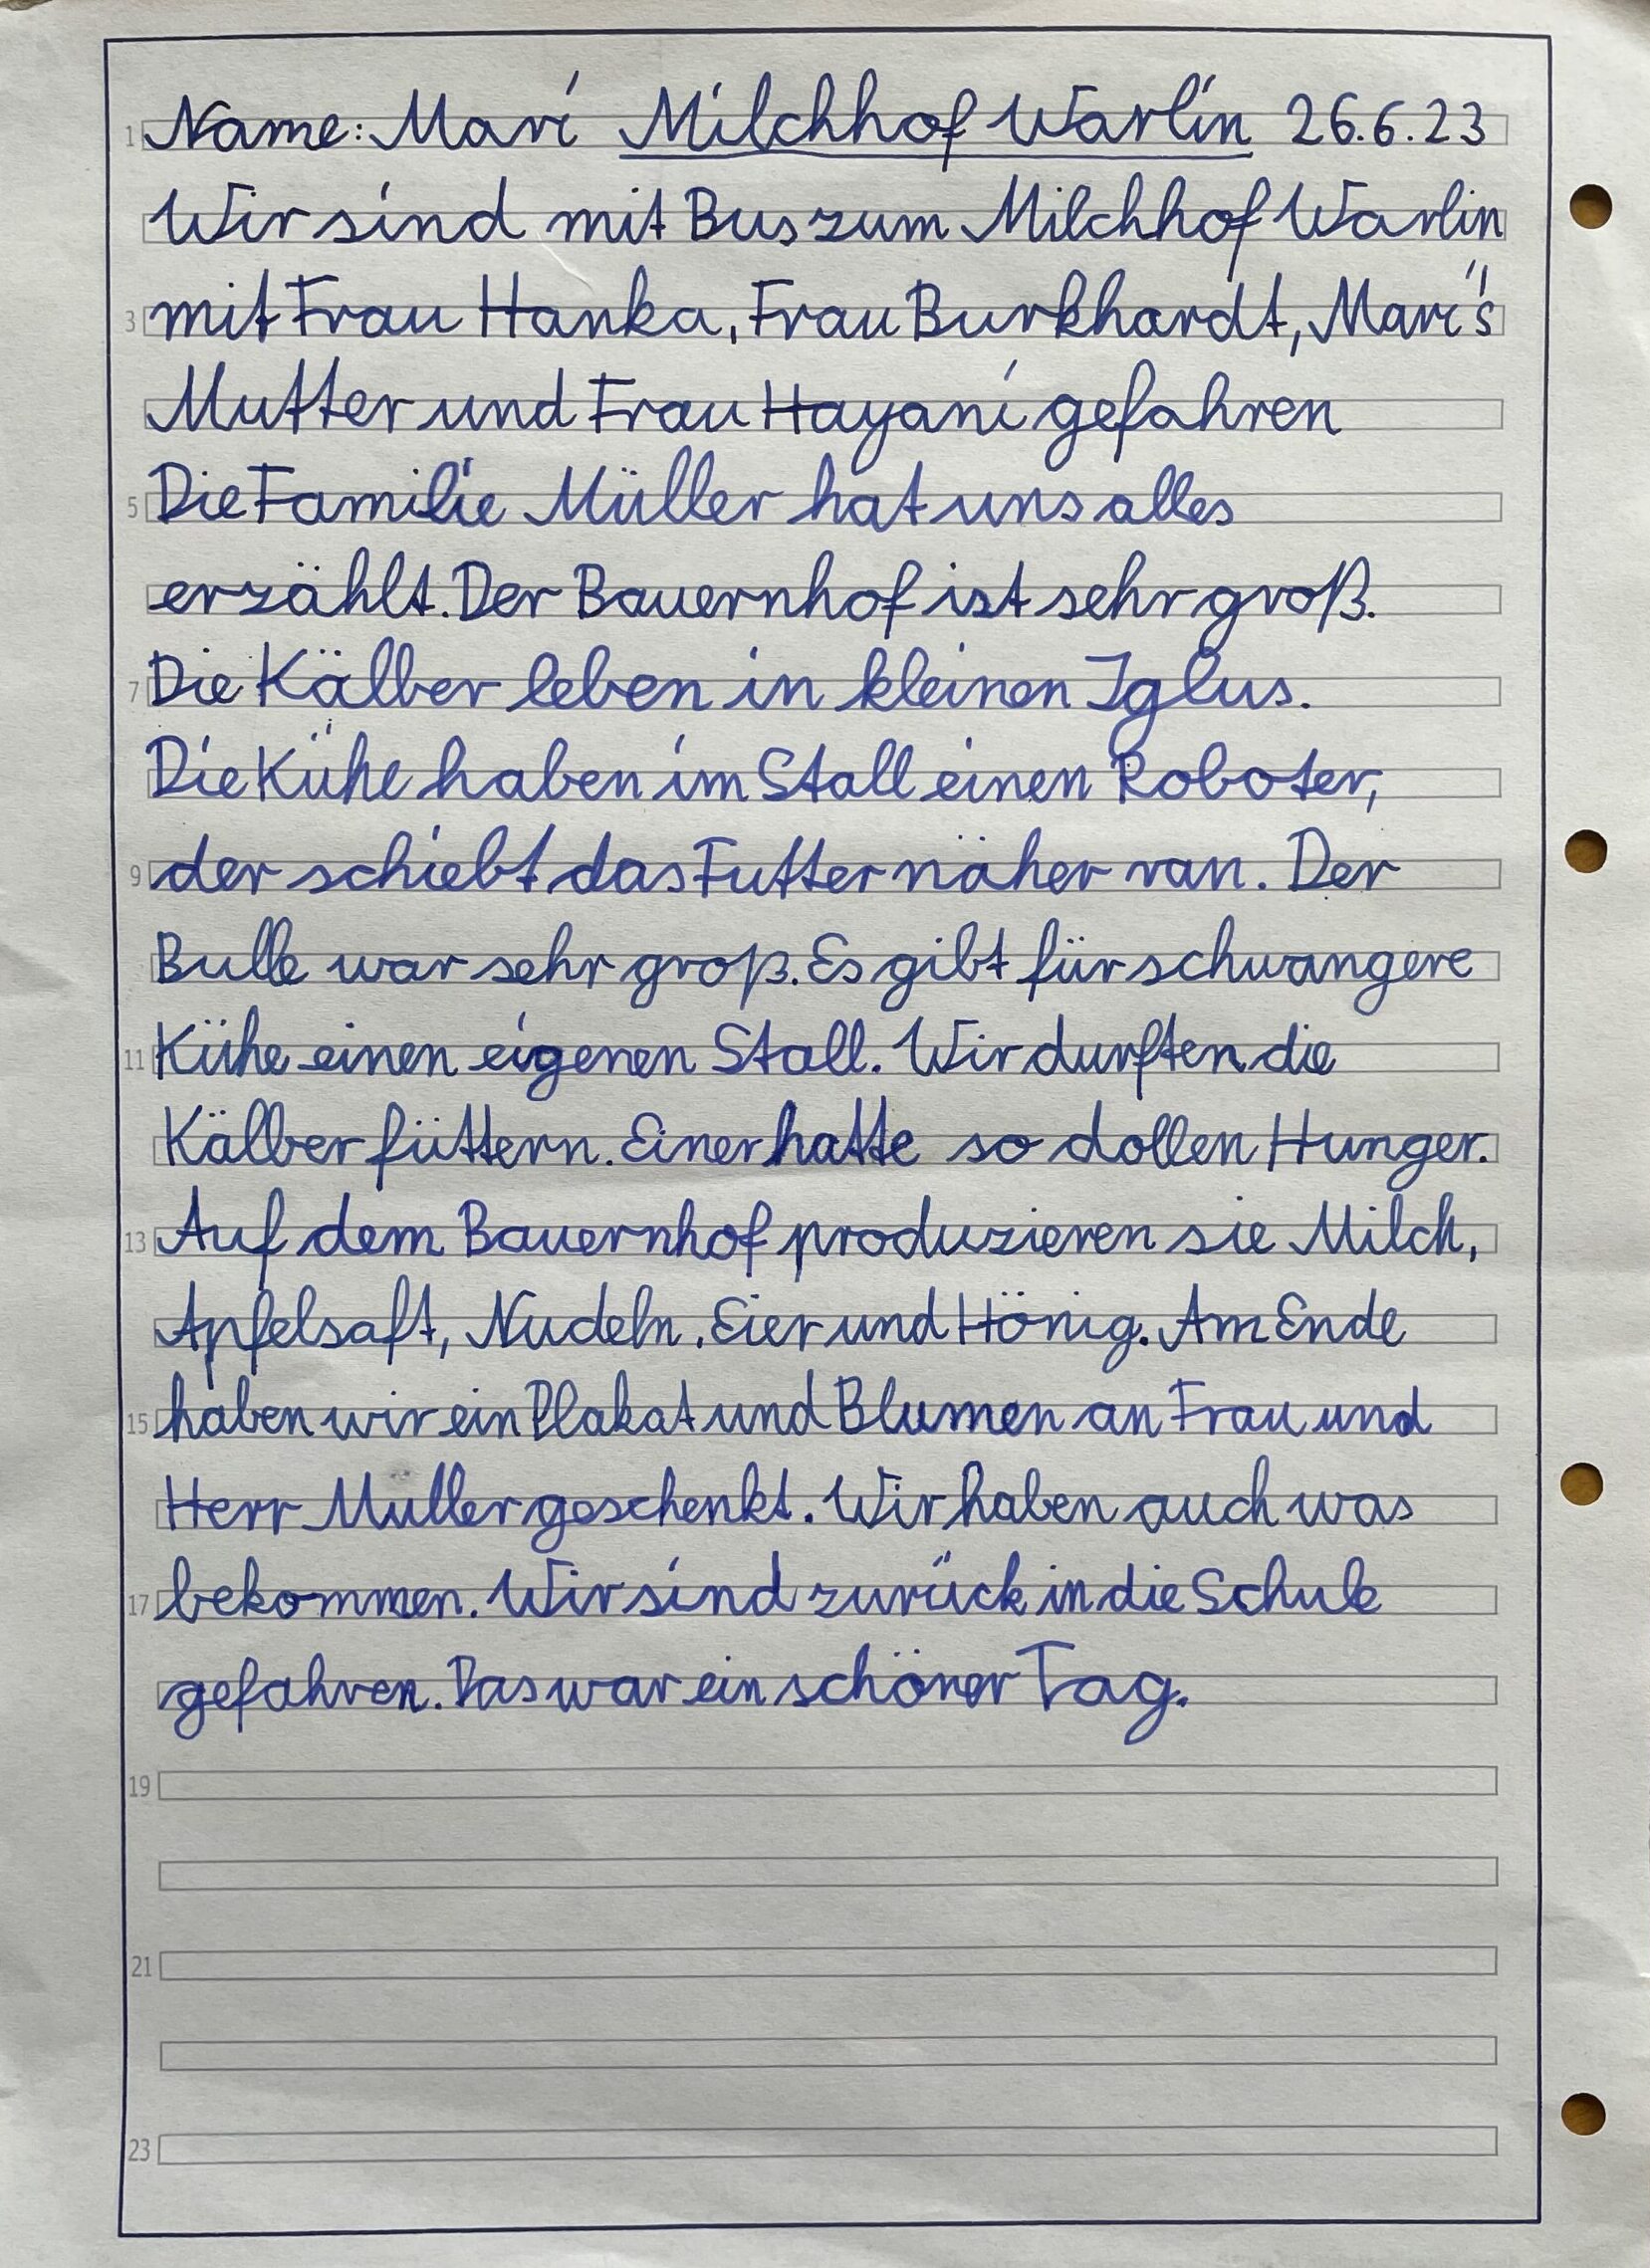 1 Name: Mari Milchhof Warlin 26.6.23
Wir sind mit Bus zum Milchhof Warlin
3 mit Frau Hanka, Frau Burkhardt, Mari's
Mutter und Frau Hayani gefahren
5 Die Familie Müller hat uns alles
erzählt. Der Bauernhof ist sehr groß.
7 Die Kälber leben in kleinen Iglus.
Die Kühe haben im Stall einen Roboter,
9 der schiebt das Futter näher ran. Der
Bulle war sehr groß. Es gibt für schwangere
11 Kühe einen eigenen Stall. Wir durften die
Kälber füttern. Einer hatte so dollen Hunger.
13 Auf dem Bauernhof produzieren sie Milch,
Apfelsaft, Nudeln, Eier und Hönig. Am Ende
15 haben wir ein Plakat und Blumen an Frau und
Herr Muller geschenkt. Wir haben auch was
17 bekommen. Wir sind zurück in die Schule
gefahren. Das war ein schöner Tag.
19
21
23